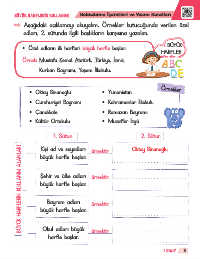 BÜYÜK HARFLERİN KULLANIMI
Noktalama İşaretleri ve Yazım Kuralları
Aşağıdaki açıklamayı okuyalım. Örnekler kutucuğunda verilen özel
adları, 2. sütunda ilgili başlıkların karşısına yazalım.
• Özel adların ilk harfleri büyük harfle başlar.
Örnek: Mustafa Kemal Atatürk, Türkiye, İzmir,
Kurban Bayramı, Yeşim İlkokulu
BÜYÜK
HARFLER
A B C
D E
Örnekler
• Oktay Sinanoğlu
• Cumhuriyet Bayramı
• Çanakkale
• Kültür Ortaokulu
• Yunanistan
• Kahramanlar İlkokulu
• Ramazan Bayramı
• Muzaffer İzgü
1. Sütun
2. Sütun
BÜYÜK HARFLERİN KULLANIM ALANLARI
Kişi ad ve soyadları
büyük harfle başlar.
örnektir
Oktay Sinanoğlu
Şehir ve ülke adları
büyük harfle başlar.
örnektir
Bayram adları
büyük harfle başlar.
örnektir
Okul adları büyük
harfle başlar.
örnektir